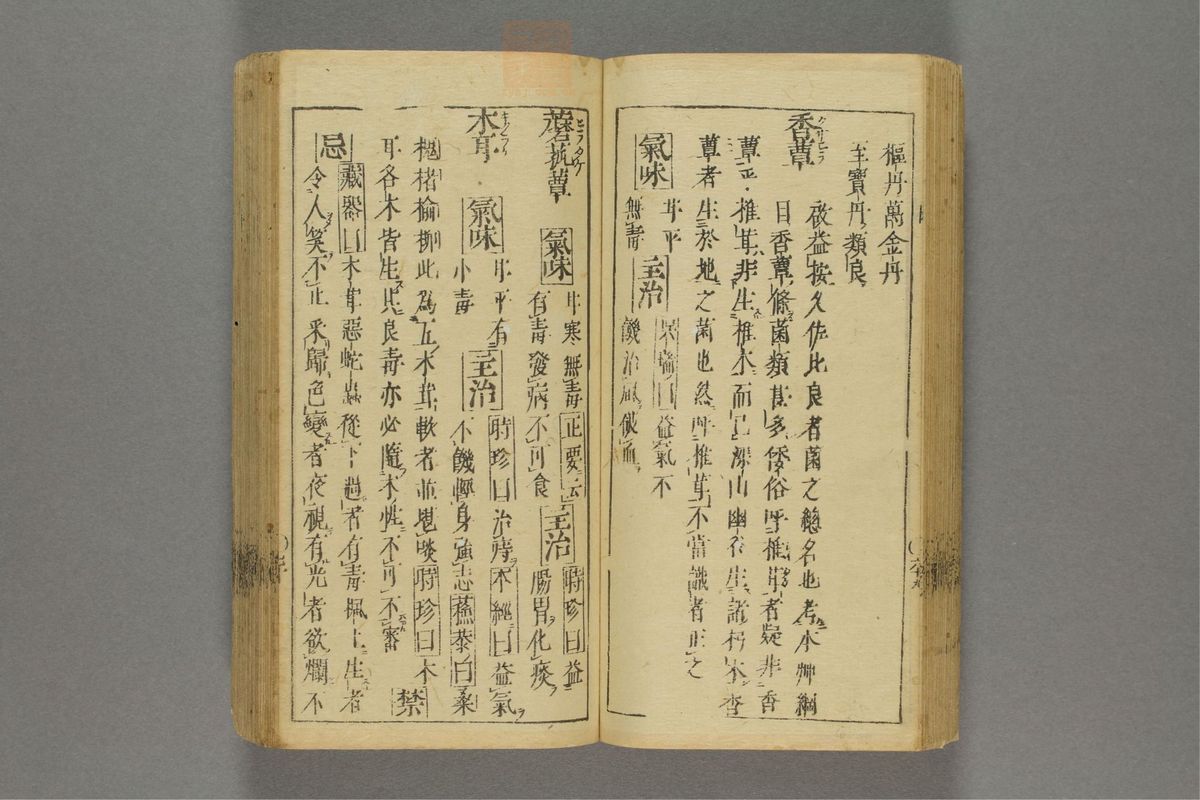 樞丹萬金丹
至寶丹類良
香蕈
啟益按久佐比良者菌之總名也考本艸綱
目香蕈條菌類甚多倭俗呼椎茸者疑非香
蕈乎椎茸非生椎木而已深山幽谷生諸朽木香
蕈者生於地之菌也然呼椎茸不當識者正之
氣味 甘平
無毒 主治 吳瑞曰益氣不
饑治風破血
蘑菰蕈 氣味 甘寒無毒 正要云
有毒發病不可食 主治 時珍曰益
腸胃化痰
木耳 氣味 甘平有
小毒 主治 時珍曰治痔 本經曰益氣
不饑輕身強志 蘇恭曰 桑
槐楮榆柳此為五木茸軟者並堪啖 時珍曰 木
耳各木皆生其良毒亦必隨木性不可不審 禁
忌 藏器曰 木茸惡蛇蟲從下過者有毒楓上生者
令人笑不止采歸色變者夜視有光者欲爛不